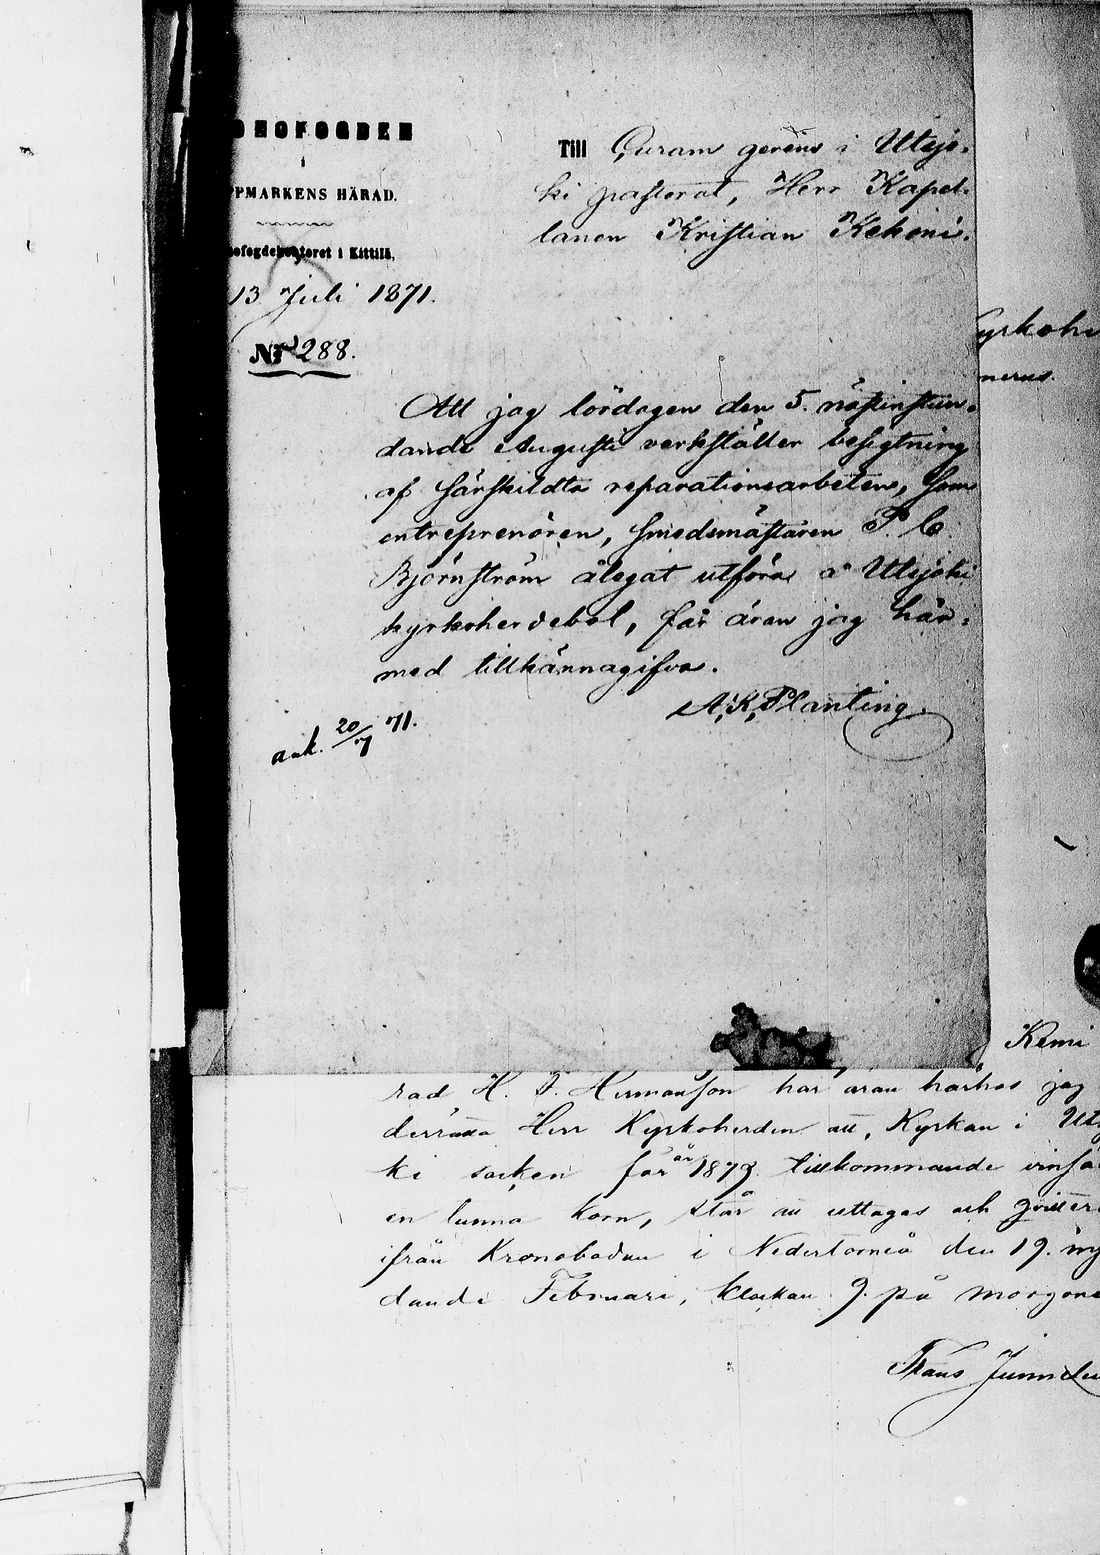 ONOFOGDEN
i
PPMARKENS HÄRAD.
nofogdekontoret i Kittilä,
13 Juli 1871.
No 288.
Till Curam gerens i Utsjo-
ki pastorat, Herr Kapel-
lanen Kristian Kekoni.
Att jag lördagen den 5. nästinstun-
dande Augusti verkställer besigtning
af särskildta reparationsarbeten, som
entreprenören, smedsmästaren P. C.
Björnström ålegat utföra å Utsjoki
kyrkoherdebol, får äran jag här-
med tillkännagifva.
A. K. Planting.
ank. 20/7 71.
yrkohe
nerus.
Kemi
rad H. F. Hermanson har äran härhos jag
derrätta Herr Kyrkoherden att, Kyrkan i Uts
ki socken för år 1879 tillkommande vinsä
en tunna korn, står att uttagas och qvitter
ifrån Kronoboden i Nedertorneå den 19. in
dande Februari, klockan 9. på morgone
Frans